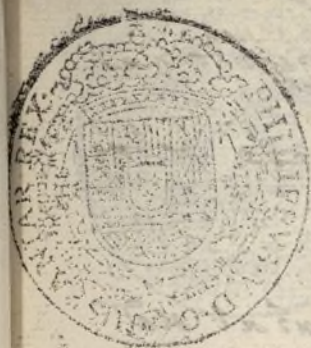 PHILIPPVS·V·D·G· HISPANIAR·REX·